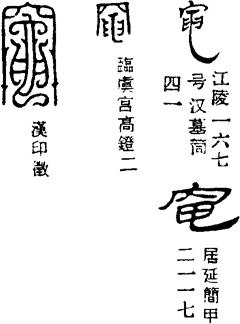 江陵一六七
号汉墓简
四一
居延簡甲
二一一七
臨虞宮高鐙二
漢印徵